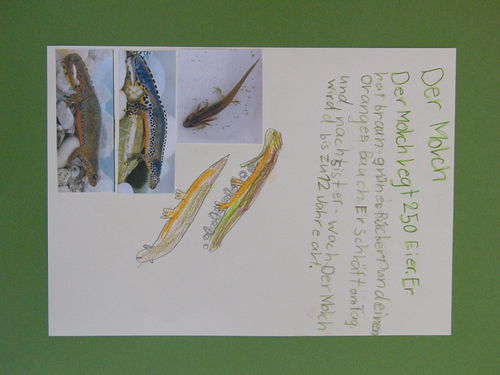 Der Molch
Der Molch legt 250 Eier. Er
hat braun-grünen Rücken und einen
orangen Bauch Er schläft am Tag
und nachts ist er wach Der Molch
wird bis zu 12 Jahre alt.